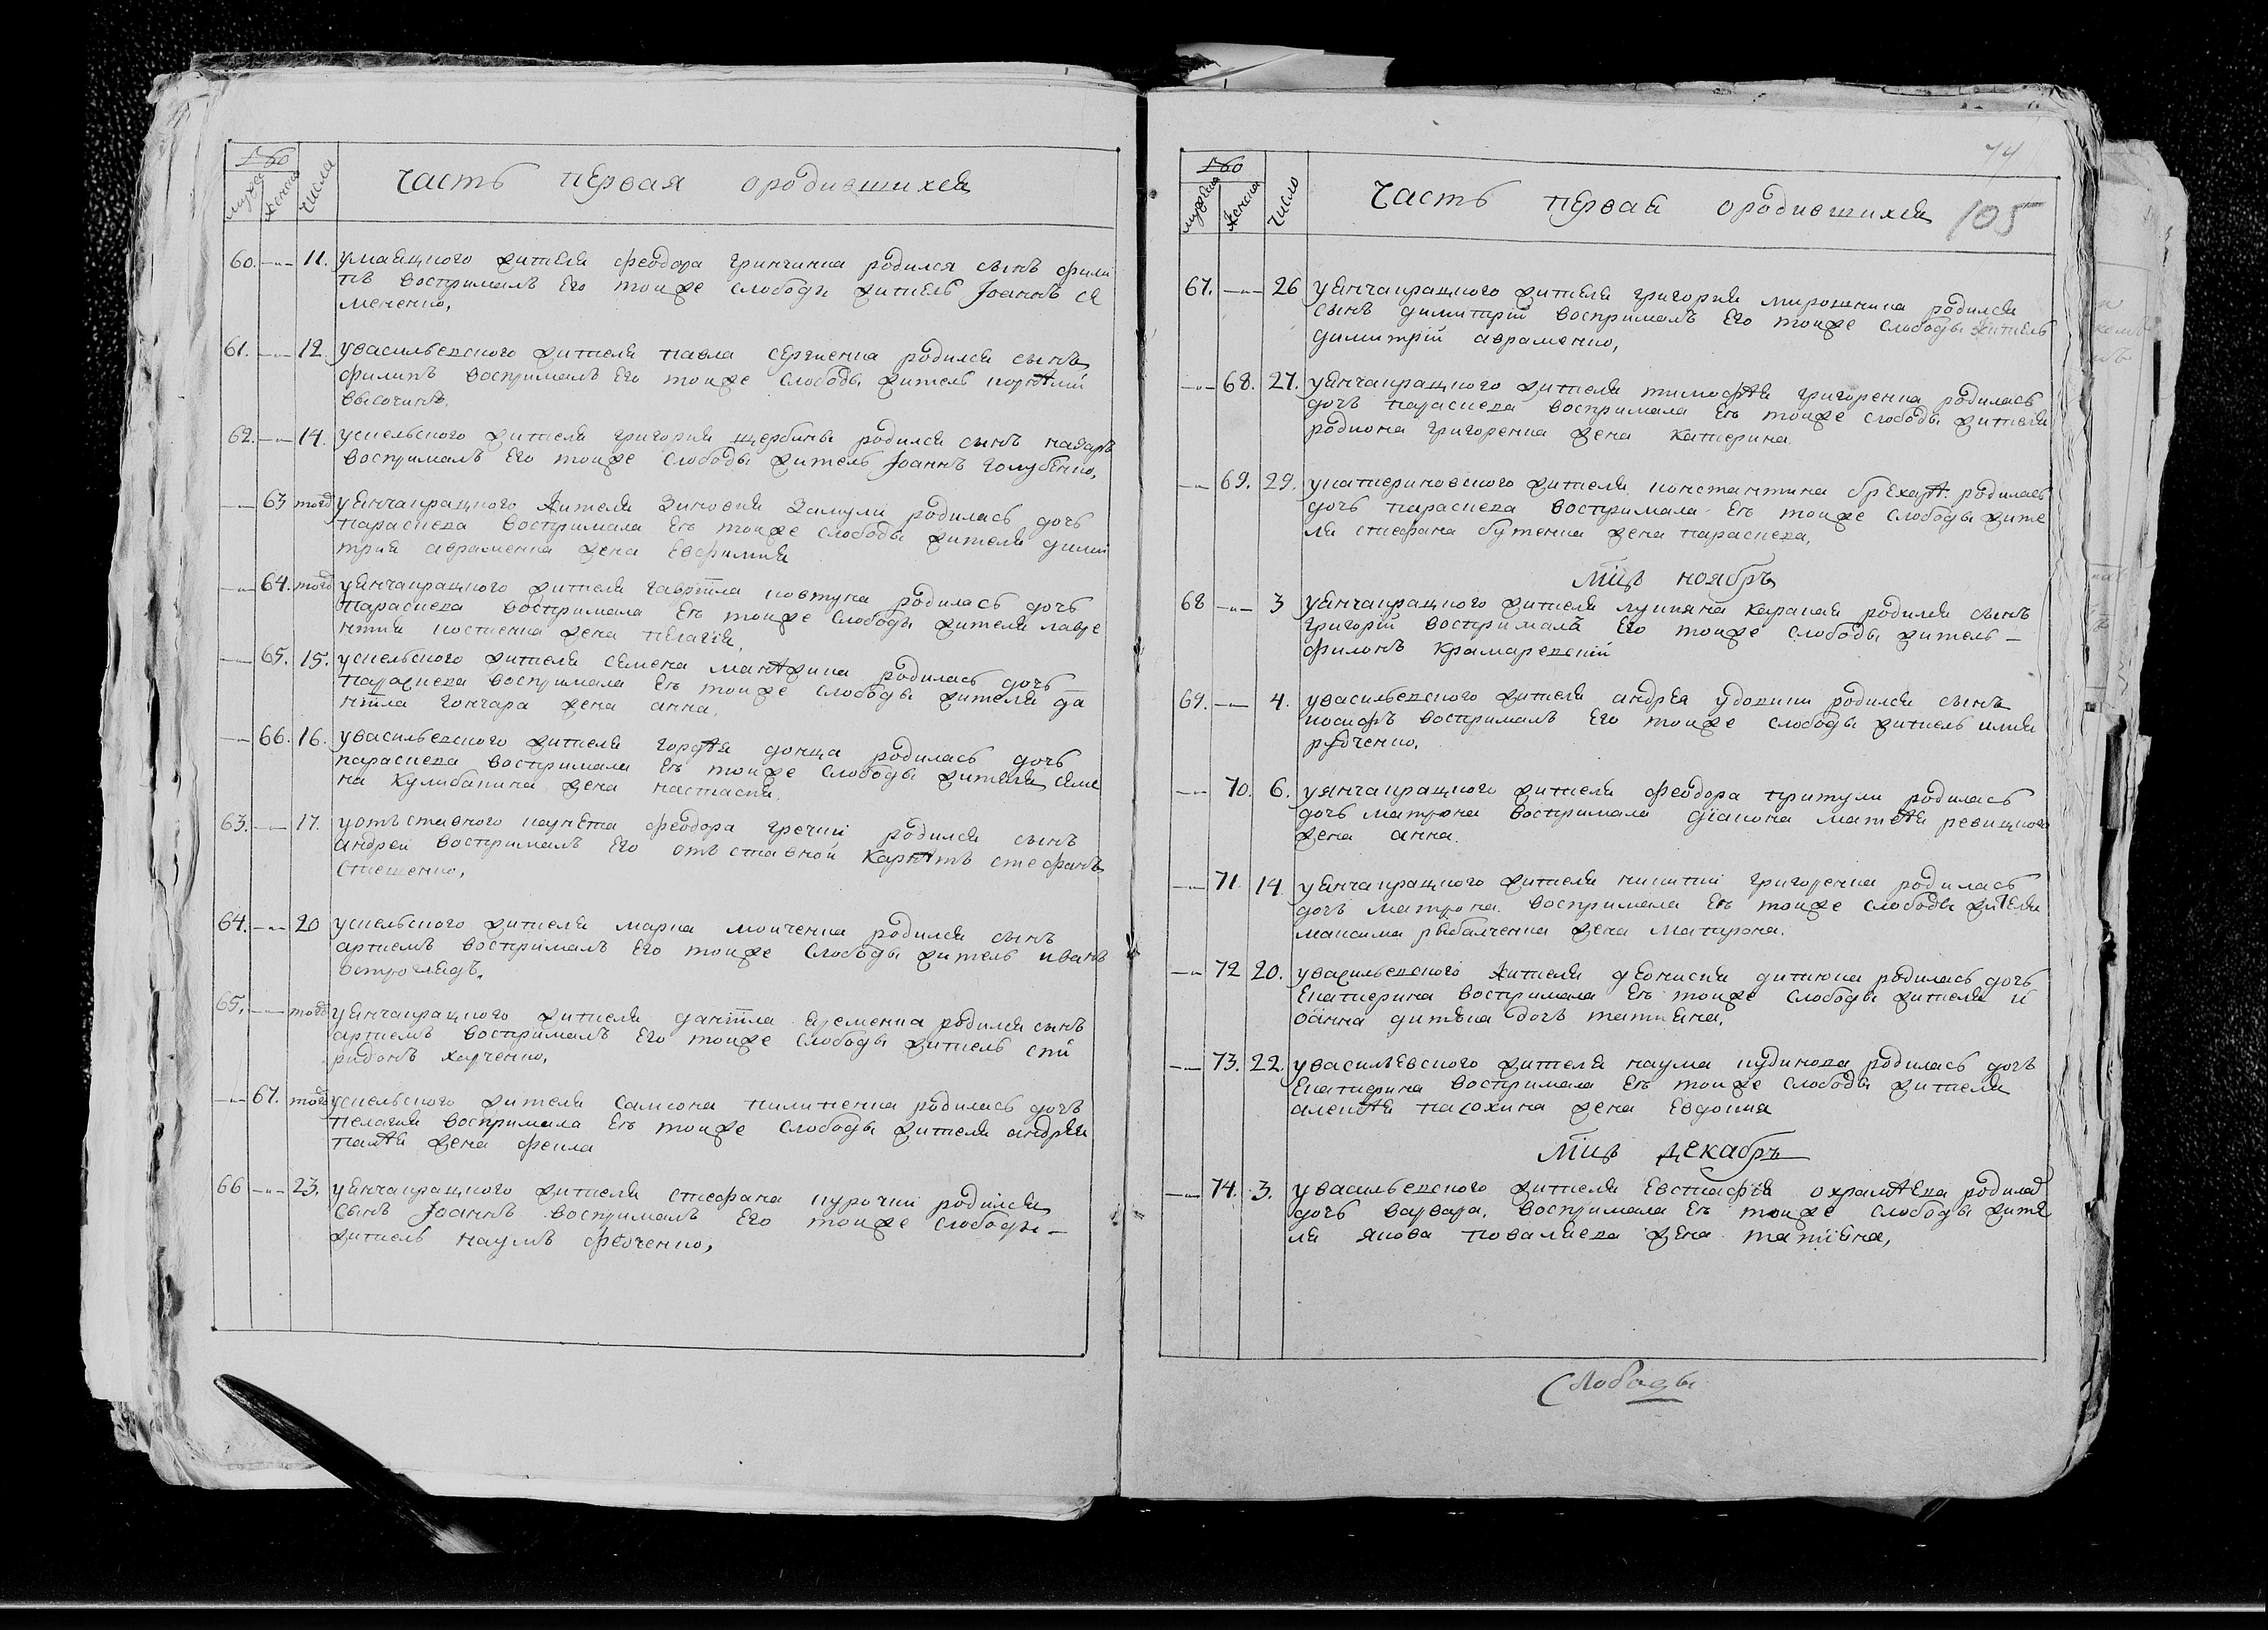 часть первая ородившихся
мужеска
женска
числа
60. 11. умаяцкого жителя феодора гринчинка родился сынъ фили
пъ восприималъ его тоиже слободы жителъ Іоаннъ се
мененко,
61. 12. увасильевского жителя павла сергиенка родился сынъ
филипъ восприималъ его тоиже слободы житель корнѣлий
высочинъ.
62. 14. усиельского жителя григория щербины родился сынъ назаръ
восприималъ его тоиже слободы житель Іоаннъ голубенко,
63 тогѡ уянчакрацкого жителя Зиновия Замули родилась дочь
параскева восприимала ея тоиже слободы жителя дими
трия авраменка жена Евфимия
64. тогѡ уянчакрацкого жителя гавріила ковтуна родилась дочь
параскева восприимала ея тоиже слободы жителя лавре
нтия костенка жена пелагія,
65. 15. усиельского жителя семена родилась дочь
параскева восприимала ея тоиже слободы жителя да
ніила гончара жена анна,
66. 16. увасильевского жителя гордѣя донца родилась дочь
параскева восприимала ея тоиже слободы жителя семе
на кулибакина жена настасия.
63. 17. уотъставного феодора гречки родился сынъ
андрей восприималъ его отъставной стефанъ
стешенко,
64. 20 усиельского жителя марка мойченка родился сынъ
артемъ восприималъ его тоиже слободы житель иванъ
остроглядъ.
65. тогѡ уянчакрацкого жителя даніила еременка родился сынъ
артемъ восприималъ его тоиже слободы житель спи
ридонъ харченко,
67. тогѡ усиельского жителя самсона пилипенка родилась дочь
пелагия восприимала ея тоиже слободы жителя андрея
палѣя жена фекла
66 23. уянчакрацкого жителя стефана курочки родился
сынъ Іоаннъ восприималъ его тоиже слободы
житель наумъ федченко,
74
105
часть первая ородившихся
мужеска
женска
число
67. 26 уянчакрацкого жителя григория мирошника родился
сынъ димитрій восприималъ его тоиже слободы житель
димитрій авраменко,
68. 27. уянчакрацкого жителя тимофѣя григоренка родилась
дочь параскева восприимала ея тоиже слободы жителя
родиона григоренка жена катерина.
69. 29. укатериновского жителя константина родилась
дочь параскева восприимала ея тоиже слободы жите
ля стефана бутенка жена параскева,
Мцъ ноябръ
68 3 уянчакрацкого жителя лукияна каракая родился сынъ
григорій восприималъ его тоиже слободы житель
филонъ крамаревский
69. 4. увасильевского жителя андрея удовики родился сынъ
иосифъ восприималъ его тоиже слободы житель илия
рубченко,
70. 6. уянчакрацкого жителя феодора притули родилась
дочь матрона восприимала діакона матѳѣя ревицкого
жена анна.
71. 14 уянчакрацкого жителя никитии григоренка родилась
дочь матрона. восприимала ея тоиже слободы жителя
максима рыбалченка жена матрона.
72 20. увасильевского жителя деонисия дитюка родилась дочь
Екатерина восприимала ея тоиже слободы жителя и
оанна дитюка дочь татияна,
73. 22. увасильевского жителя наума кудинова родилась дочь
Екатерина восприимала ея тоиже слободы жителя
алексѣя пасохина жена Евдокия
Мцъ декабръ
74. 3. увасильевского жителя Евстафія охрамѣева родилас
дочь варвара. восприимала ея тоиже слободы жите
ля якова поваляева жена татіяна,
Слободы